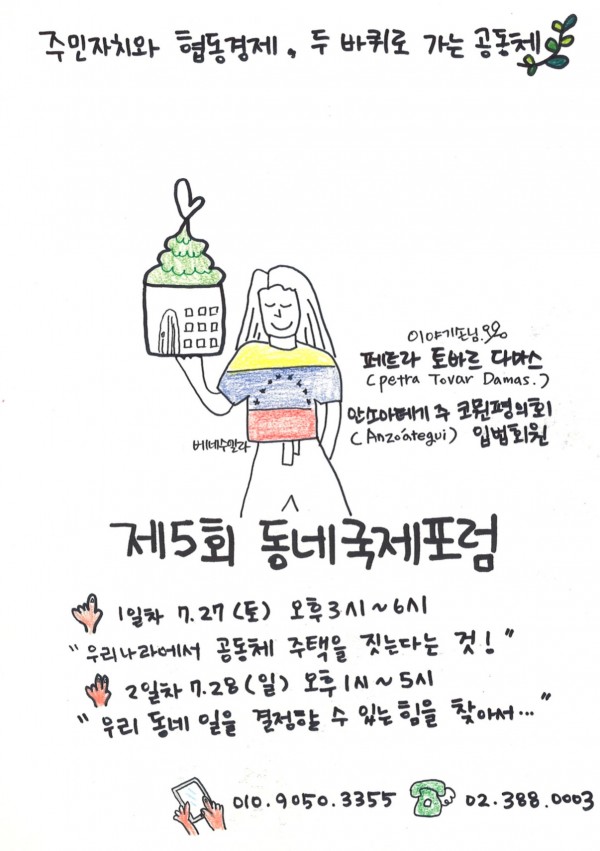 주민자치와 협동경제, 두 바퀴로 가는 공동체
이야기손님
페트라 토바르 다마스
(petra Tovar Damas.)
안소아떼기 주 코뮌평의회
(Anzoátegui) 입법회원
베네수엘라
제5회 동네국제포럼
1일차 7.27(토) 오후3시~6시
"우리나라에서 공동체 주택을 짓는다는 것!"
2일차 7.28(일) 오후1시~5시
"우리 동네 일을 결정할 수 있는 힘을 찾아서..."
010.9050.3355 02.388.0003